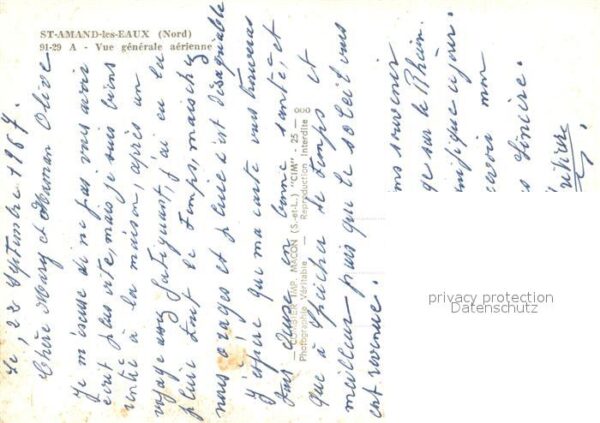 ST-AMAND-les-EAUX (Nord)
91-29 A - Vue générale aérienne
le, 22 Septembre 1967.
Chère Mary et Herman Olive
Je m'excuse de ne pas vous avoir
écrit plus vite, mais je suis bien
rentré à la maison, après un
voyage assez fatiguant, j'ai eu la
pluie tout le temps, mais chez
nous orages et pluie c'est désagréable
J'espère que ma carte vous trouveras
tous deux en bonne santé, et
que à Speicher le temps et
meilleur puis que le soleil vous
est revenue.
COMBIER IMP. MACON (S.-et-L.) "CIM" - 25 - 000
Photographie Véritable - Reproduction Interdite
souvenir
sur le Rhin.
mon
Sincère.
privacy protection
Datenschutz